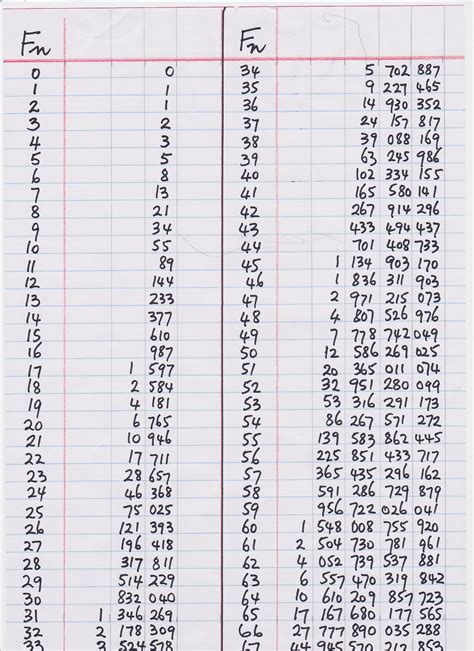 Fn
0 0
1 1
2 1
3 2
4 3
5 5
6 8
7 13
8 21
9 34
10 55
11 89
12 144
13 233
14 377
15 610
16 987
17 1 597
18 2 584
19 4 181
20 6 765
21 10 946
22 17 711
23 28 657
24 46 368
25 75 025
26 121 393
27 196 418
28 317 811
29 514 229
30 832 040
31 1 346 269
32 2 178 309
33 3 524 578
Fn
34 5 702 887
35 9 227 465
36 14 930 352
37 24 157 817
38 39 088 169
39 63 245 986
40 102 334 155
41 165 580 141
42 267 914 296
43 433 494 437
44 701 408 733
45 1 134 903 170
46 1 836 311 903
47 2 971 215 073
48 4 807 526 976
49 7 778 742 049
50 12 586 269 025
51 20 365 011 074
52 32 951 280 099
53 53 316 291 173
54 86 267 571 501
55 139 583 862 445
56 225 851 433 717
57 365 435 296 162
58 591 286 729 879
59 956 722 026 041
60 1 548 008 755 920
61 2 504 730 781 961
62 4 052 739 537 881
63 6 557 470 319 842
64 10 610 209 857 723
65 17 167 680 177 565
66 27 777 890 035 288
67 44 945 570 212 853